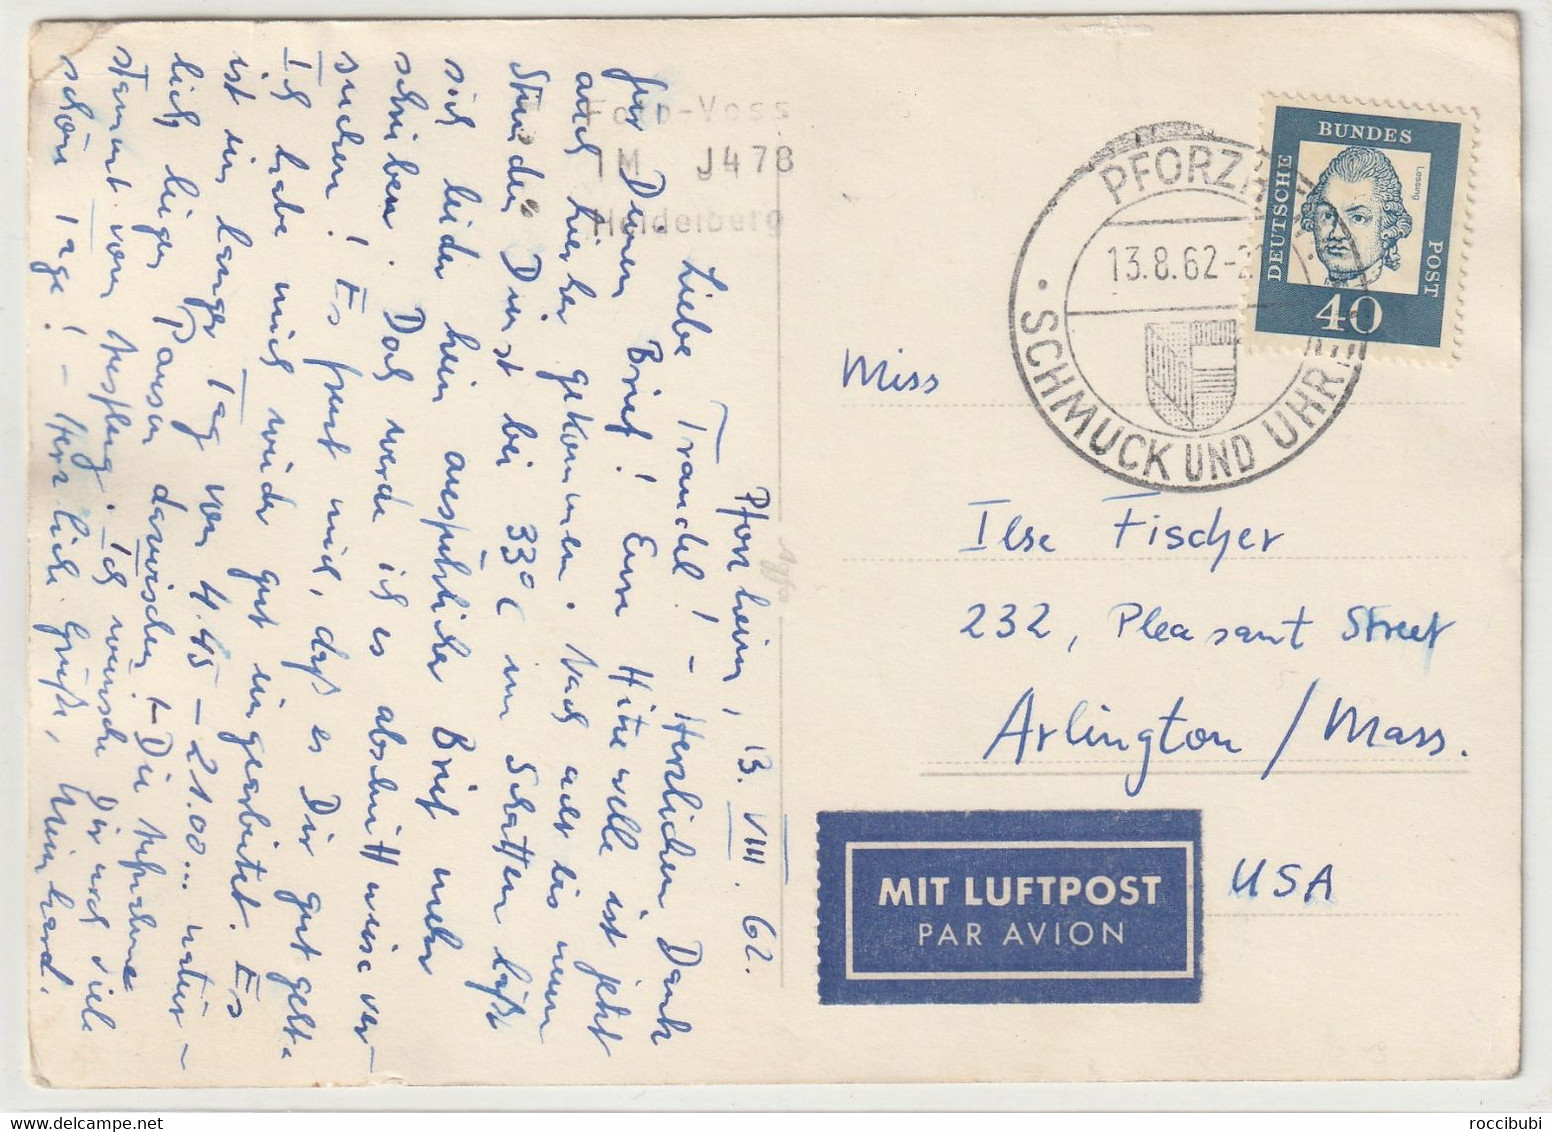 Pforzheim, 13. VIII. 62.
Liebe Traudel! – Herzlichen Dank
für Deinen Brief! Eure Hitzewelle ist jetzt
auch hierher gekommen. Nach acht bis neun
Stunden Dienst bei 33°C im Schatten läßt
sich leider kein ausführlicher Brief mehr
schreiben. Doch werde ich es abschnittweise ver-
suchen! Es freut mich, daß es Dir gut geht.
Ich habe mich wieder gut eingearbeitet. Es
ist ein langer Tag von 4.45 – 21.00... natür-
lich lieger Pausen dazwischen! – Die Aufnahme
stammt vom Ausflug. Ich wünsche Dir noch viele
schöne Tage! – Herzliche Grüße, Meinhard.
Foto-Voss
1M J478
Heidelberg
Agfa
PFORZH
13.8.62-2
SCHMUCK UND UHR
DEUTSCHE
BUNDES
POST
Lessing
40
Miss
Ilse Fischer
232, Pleasant Street
Arlington / Mass.
USA
MIT LUFTPOST
PAR AVION
roccibubi